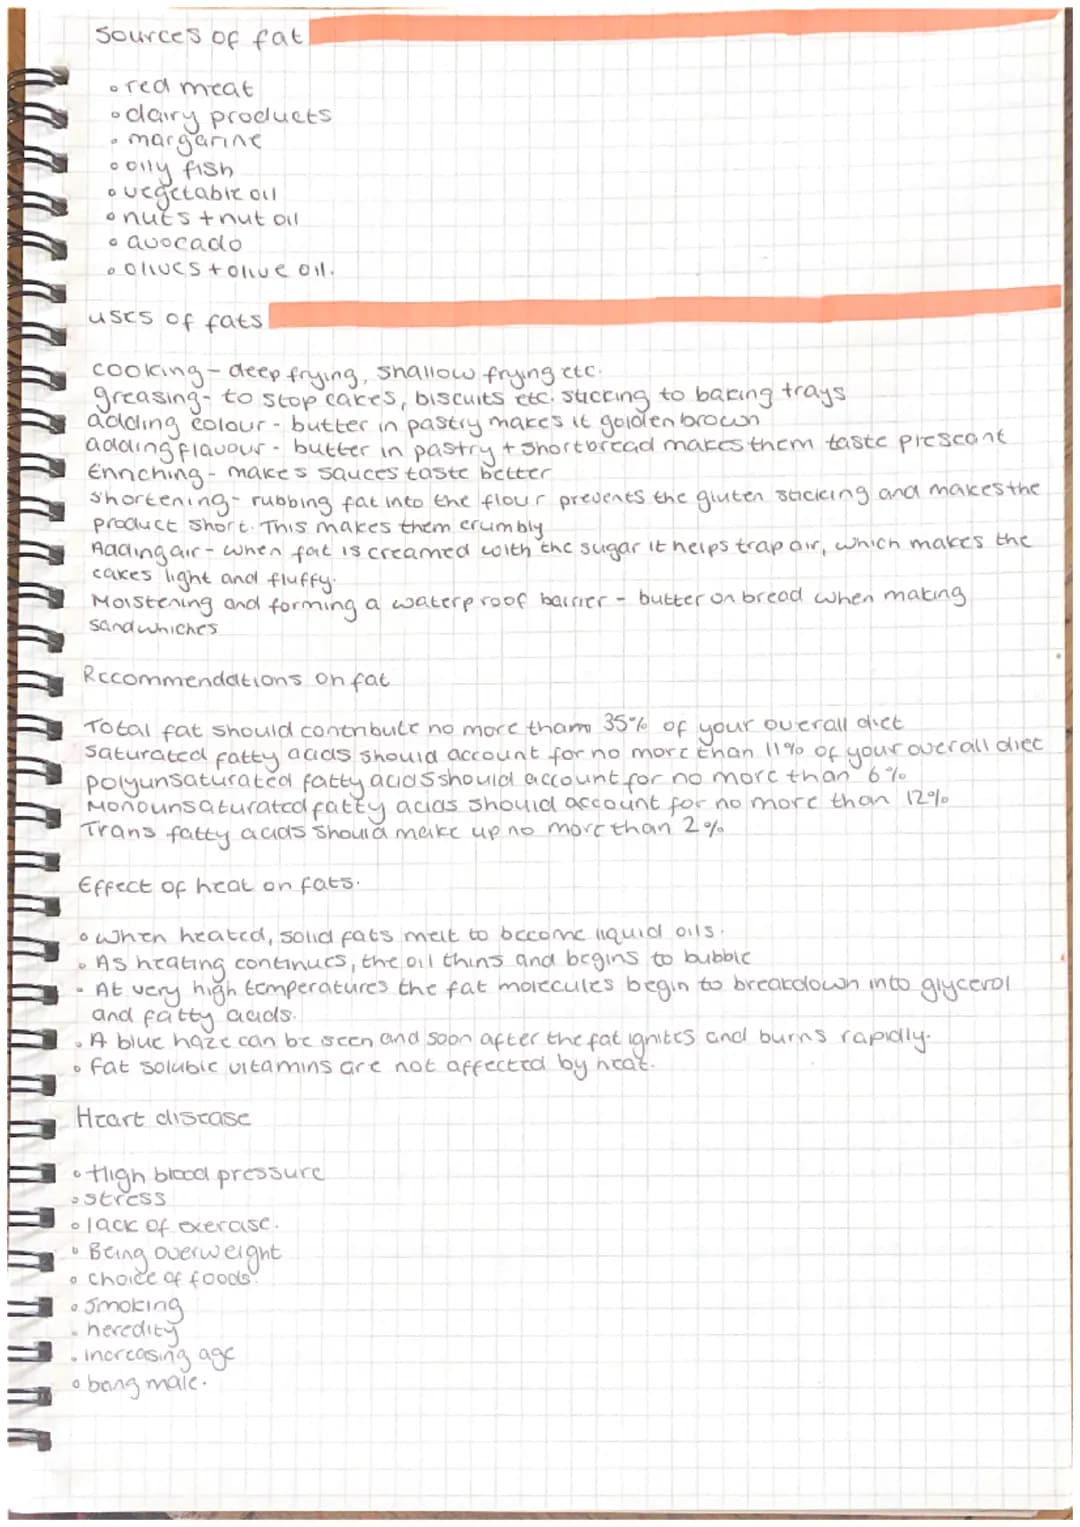 Sources of fat
• red meat
• dairy products
• margarine
• oily fish
• vegetable oil
• nuts + nut oil
• avocado
• olives + olive oil.
uses of fats
cooking - deep frying, shallow frying etc.
greasing - to stop cakes, biscuits etc. sticking to baking trays
adding colour - butter in pastry makes it golden brown
adding flavour - butter in pastry + shortbread makes them taste prescant
Enriching - makes sauces taste better
Shortening - rubbing fat into the flour prevents the gluten sticking and makes the
product short. This makes them crumbly
Adding air - when fat is creamed with the sugar it helps trap air, which makes the
cakes light and fluffy.
Moistening and forming a waterproof barrier - butter on bread when making
sandwhiches
Reccommendations on fat
Total fat should contribute no more tham 35% of your overall diet
saturated fatty acids should account for no more than 11% of your overall diet
polyunsaturated fatty acids should account for no more than 6%
Monounsaturated fatty acids should account for no more than 12%
Trans fatty acids should make up no more than 2%
Effect of heat on fats.
• when heated, solid fats melt to become liquid oils.
• As heating continues, the oil thins and begins to bubble
• At very high temperatures the fat molecules begin to breakdown into glycerol
and fatty acids.
• A blue haze can be seen and soon after the fat ignites and burns rapidly.
• fat soluble vitamins are not affected by heat.
Heart disease
• High blood pressure
• stress
• lack of exercise.
• Being overweight
• choice of foods.
• smoking
• heredity
• increasing age
• being male.